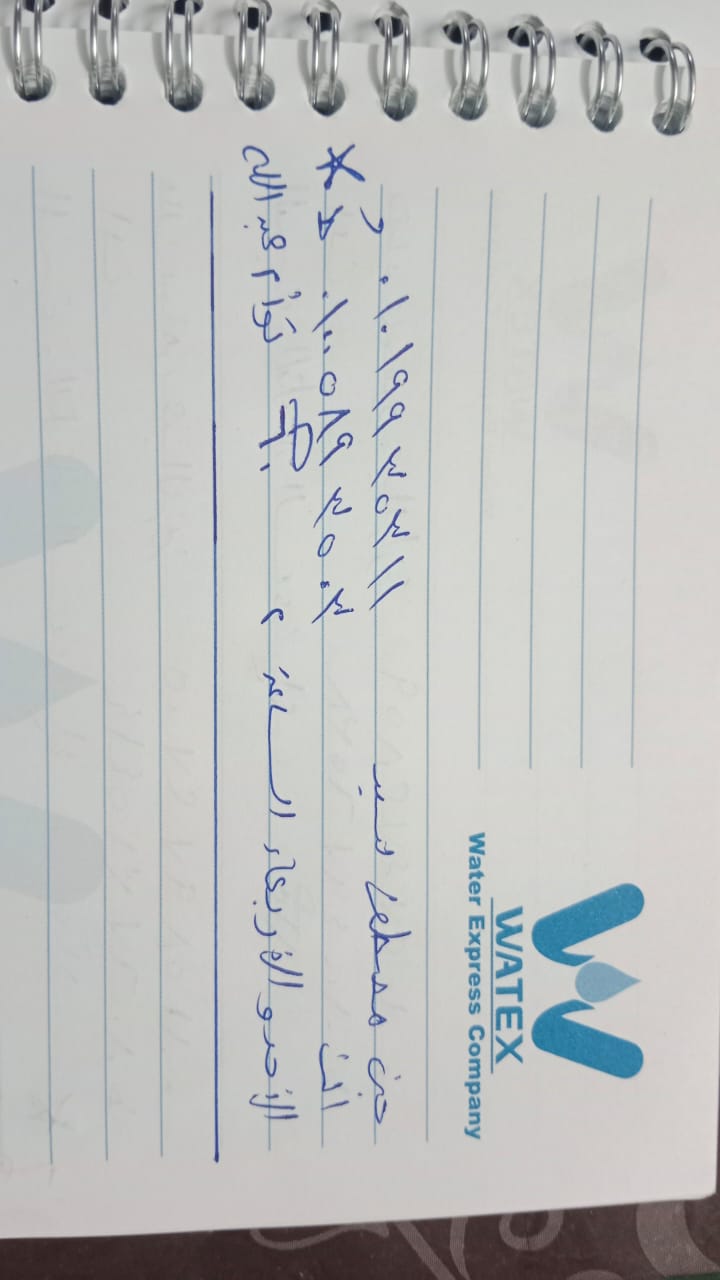 WATEX
Water Express Company
جنى مصطفى سيد ٠١٠١٩٩٣٥٣١١ و
الث ٠١٠٠٥٨٩٣٥٠٣
الأحد والأربعاء الساعة ٢ ٦٠ توأم عبد الله